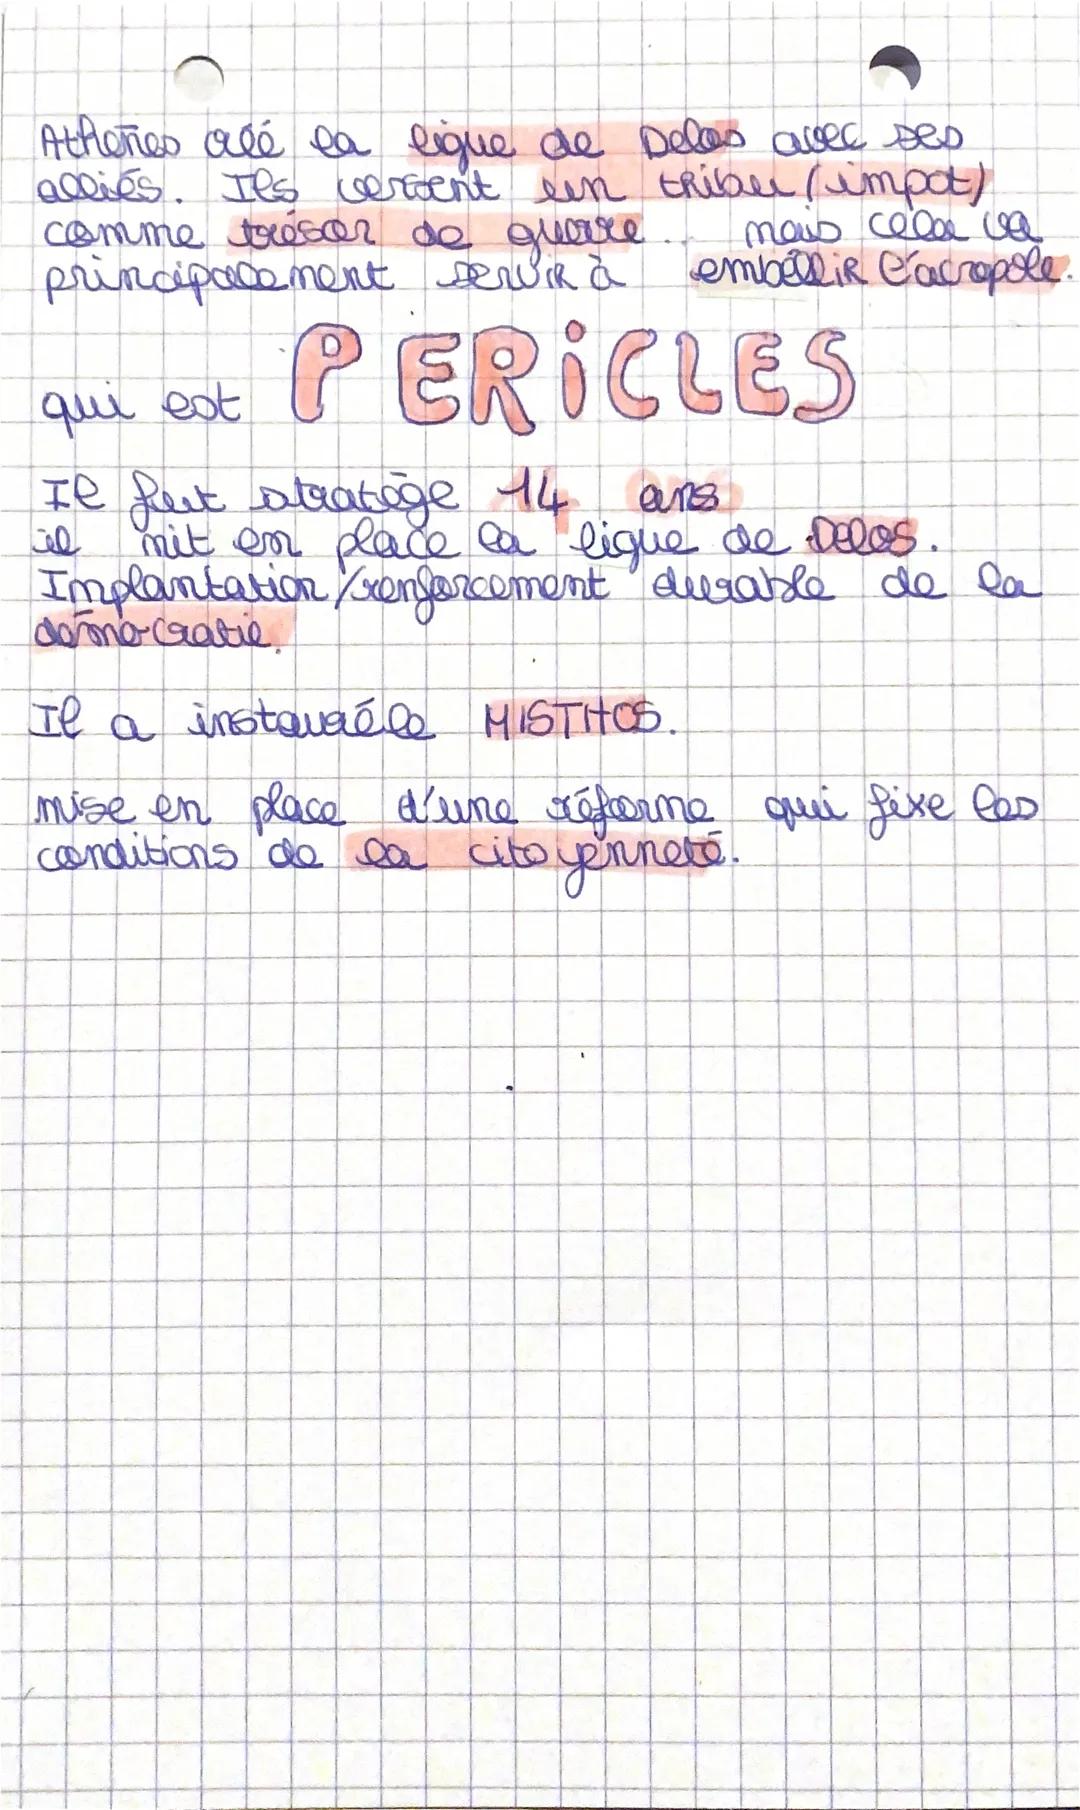 Athènes créé la ligue de Delos avec ses
alliés. Ils versent un tribu (impot)
comme trésor de guerre... mais cela va
principalement servir à embellir l'acropole.
qui est PERiCLES
Il fut stratège 14 ans
il mit en place la ligue de Delos.
Implantation/renforcement durable de la
démocratie.
Il a instauré le MISTHOS.
mise en place d'une réforme qui fixe les
conditions de la citoyenneté.